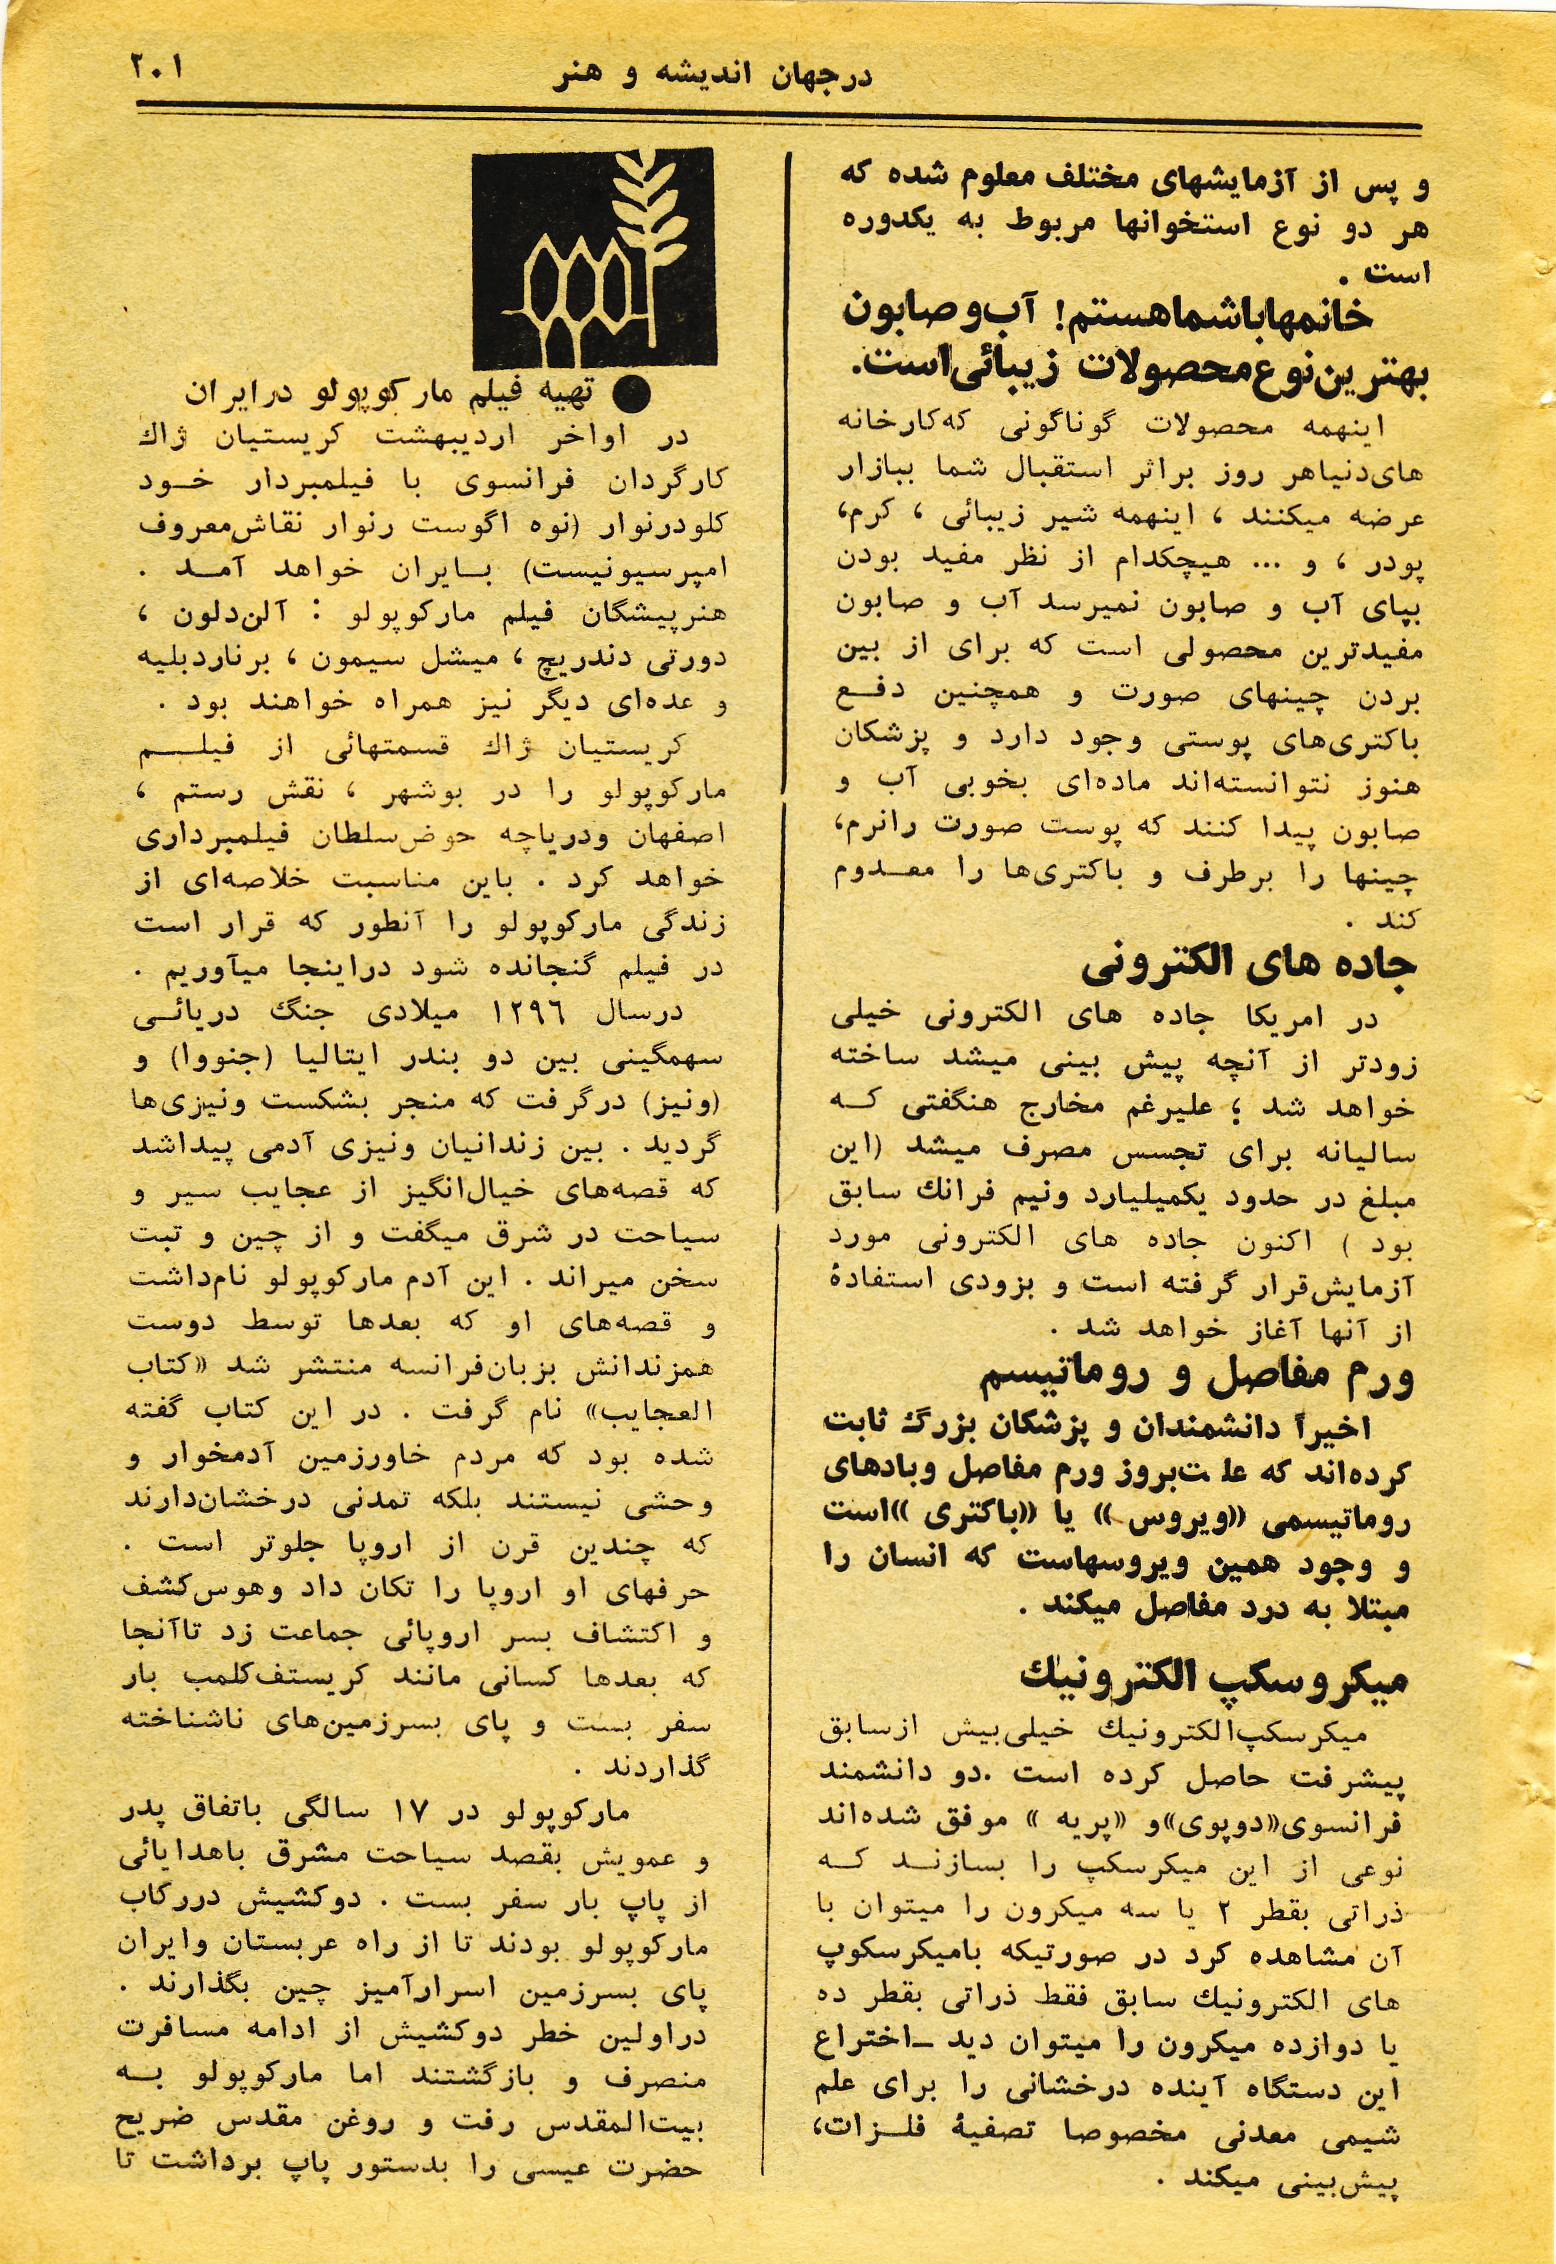 درجهان اندیشه و هنر
۲۰۱
و پس از آزمایشهای مختلف معلوم شده که
هر دو نوع استخوانها مربوط به یکدوره
است .
خانمها باشما هستم! آب و صابون
بهترین نوع محصولات زیبائی است.
اینهمه محصولات گوناگونی که کارخانه
های دنیا هر روز بر اثر استقبال شما ببازار
عرضه میکنند ، اینهمه شیر زیبائی ، کرم،
پودر ، و ... هیچکدام از نظر مفید بودن
بپای آب و صابون نمیرسد آب و صابون
مفیدترین محصولی است که برای از بین
بردن چینهای صورت و همچنین دفـع
باکتری‌های پوستی وجود دارد و پزشکان
هنوز نتوانسته‌اند ماده‌ای بخوبی آب و
صابون پیدا کنند که پوست صورت را نرم،
چینها را برطرف و باکتری‌ها را معـدوم
کند .
جاده های الکترونی
در امریکا جاده های الکترونی خیلی
زودتر از آنچه پیش بینی میشد ساخته
خواهد شد ؛ علیرغم مخارج هنگفتی کـه
سالیانه برای تجسس مصرف میشد (این
مبلغ در حدود یکمیلیارد و نیم فرانك سابق
بود ) اکنون جاده های الکترونی مورد
آزمایش قرار گرفته است و بزودی استفادهٔ
از آنها آغاز خواهد شد .
ورم مفاصل و روماتیسم
اخیرآ دانشمندان و پزشکان بزرگ ثابت
کرده‌اند که علت بروز ورم مفاصل و بادهای
روماتیسمی «ویروس » یا «باکتری »است
و وجود همین ویروسهاست که انسان را
مبتلا به درد مفاصل میکند .
میکروسکپ الکترونیك
میکرسکپ الکترونیك خیلی بیش از سابق
پیشرفت حاصل کرده است .دو دانشمند
فرانسوی«دوپوی»و «پریه » موفق شده‌اند
نوعی از این میکرسکپ را بسازنـد کـه
ذراتی بقطر ۲ یا سه میکرون را میتوان با
آن مشاهده کرد در صورتیکه بامیکرسکوپ
های الکترونیك سابق فقط ذراتی بقطر ده
یا دوازده میکرون را میتوان دید ـ اختراع
این دستگاه آینده درخشانی را برای علم
شیمی معدنی مخصوصا تصفیهٔ فلـزات،
پیش‌بینی میکند .
● تهیه فیلم مارکوپولو در ایران
در اواخر اردیبهشت کریستیان ژاك
کارگردان فرانسوی با فیلمبردار خـود
کلودرنوار (نوه اگوست رنوار نقاش معروف
امپرسیونیست) بـایران خواهد آمـد .
هنرپیشگان فیلم مارکوپولو : آلن‌دلون ،
دورتی دندریچ ، میشل سیمون ، برناردبلیه
و عده‌ای دیگر نیز همراه خواهند بود .
کریستیان ژاك قسمتهائی از فیلـم
مارکوپولو را در بوشهر ، نقش رستم ،
اصفهان و دریاچه حوض سلطان فیلمبرداری
خواهد کرد . باین مناسبت خلاصه‌ای از
زندگی مارکوپولو را آنطور که قرار است
در فیلم گنجانده شود دراینجا میآوریم .
درسال ۱۲۹۶ میلادی جنگ دریائـی
سهمگینی بین دو بندر ایتالیا (جنووا) و
(ونیز) درگرفت که منجر بشکست ونیزی‌ها
گردید . بین زندانیان ونیزی آدمی پیداشد
که قصه‌های خیال‌انگیز از عجایب سیر و
سیاحت در شرق میگفت و از چین و تبت
سخن میراند . این آدم مارکوپولو نام‌داشت
و قصه‌های او که بعدها توسط دوست
همزندانش بزبان‌فرانسه منتشر شد «کتاب
العجایب» نام گرفت . در این کتاب گفته
شده بود که مردم خاورزمین آدمخوار و
وحشی نیستند بلکه تمدنی درخشان‌دارند
که چندین قرن از اروپا جلوتر است .
حرفهای او اروپا را تکان داد و هوس کشف
و اکتشاف بسر اروپائی جماعت زد تا آنجا
که بعدها کسانی مانند کریستف‌کلمب بار
سفر بست و پای بسرزمین‌های ناشناخته
گذاردند .
مارکوپولو در ۱۷ سالگی باتفاق پدر
و عمویش بقصد سیاحت مشرق باهدایائی
از پاپ بار سفر بست . دوکشیش دررکاب
مارکوپولو بودند تا از راه عربستان و ایران
پای بسرزمین اسرارآمیز چین بگذارند .
در اولین خطر دوکشیش از ادامه مسافرت
منصرف و بازگشتند اما مارکوپولو بـه
بیت‌المقدس رفت و روغن مقدس ضریح
حضرت عیسی را بدستور پاپ برداشت تا